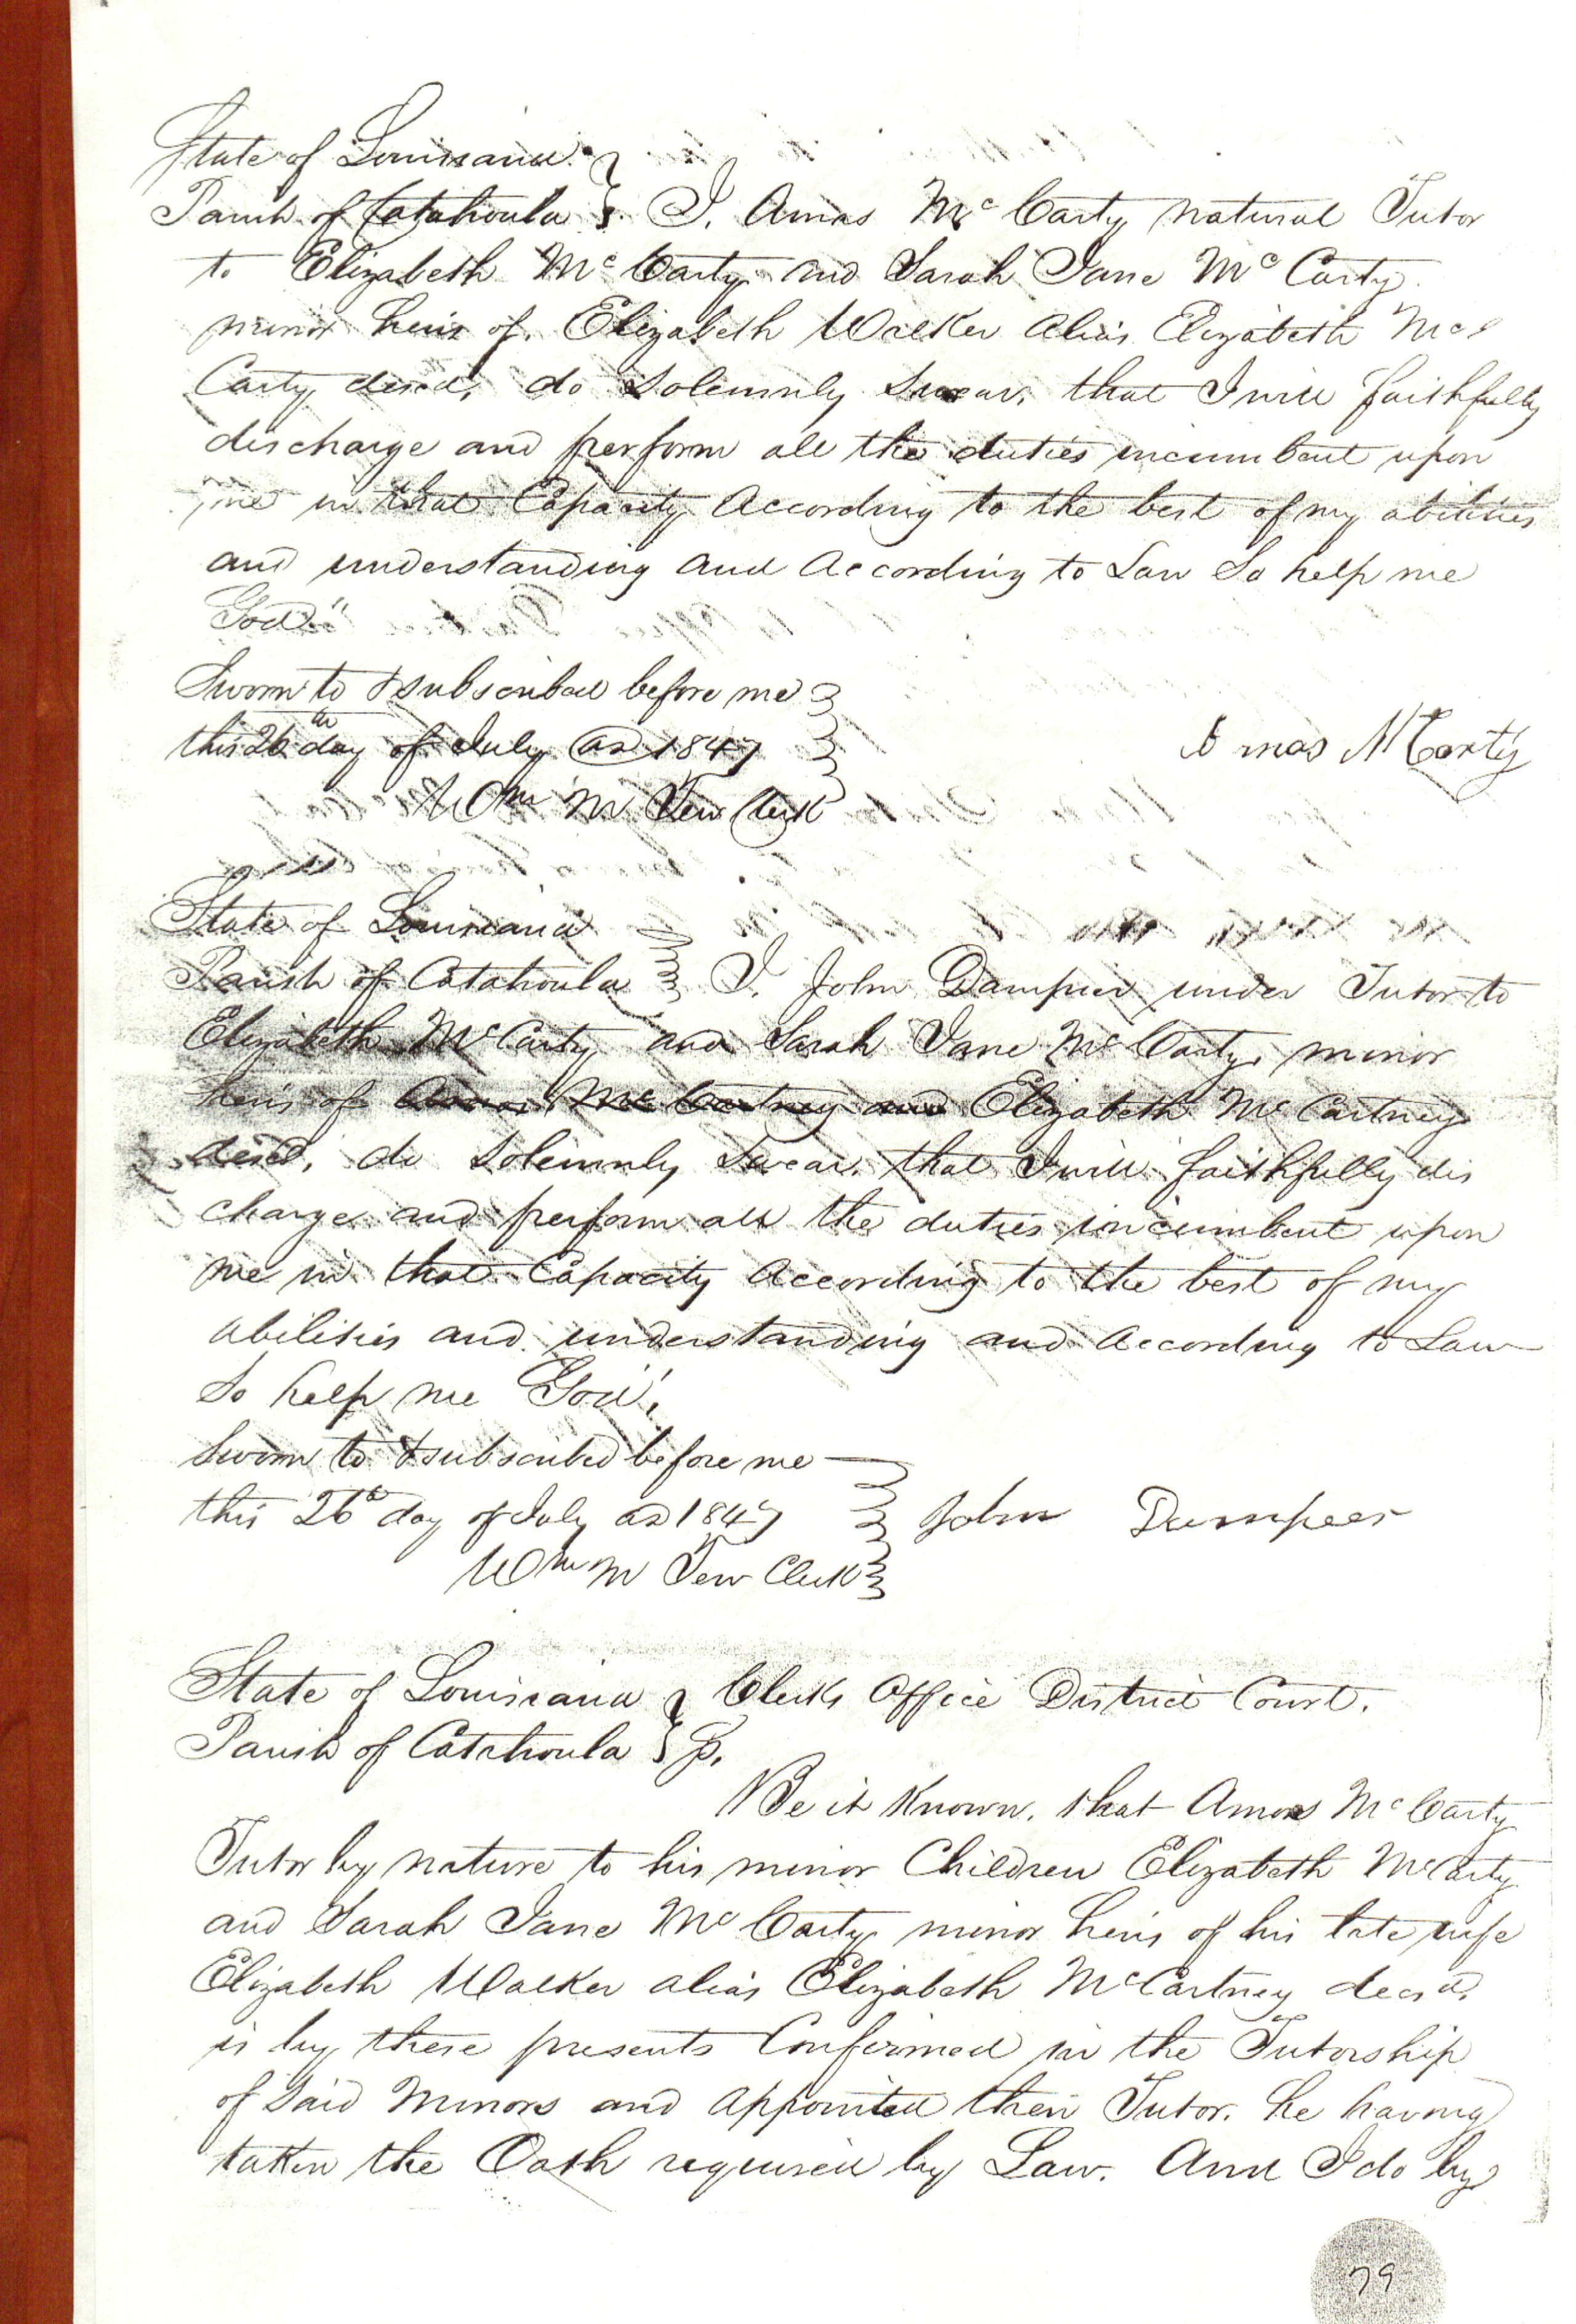 State of Louisiana
Parish of Catahoula I, Amos Mc Carty natural Tutor
to Elizabeth Mc Carty and Sarah Jane Mc Carty
minor heirs of Elizabeth Walker alias Elizabeth Mc
Carty decsd, do solemnly swear, that I will faithfully
discharge and perform all the duties incumbent upon
me in that Capacity According to the best of my abilities
and understanding and According to Law So help me
God"
Sworn to & subscribed before me
this 26th day of July AD 1847
Amos McCarty
Wm M Tew Clerk
State of Louisiana
Parish of Catahoula I, John Dampier under Tutor to
Elizabeth McCarty and Sarah Jane Mc Carty, minor
heirs of Amos Mc Cartney and Elizabeth Mc Cartney
decsd, do solemnly swear, that I will faithfully dis
charge and perform all the duties incumbent upon
me in that Capacity According to the best of my
abilities and understanding and According to Law
So help me God,
Sworn to & subscribed before me
this 26th day of July AD 1847 John Dampeer
Wm M Tew Clerk
State of Louisiana Clerks Office District Court.
Parish of Catahoula
Be it Known, that Amos McCarty
Tutor by nature to his minor Children Elizabeth McCarty
and Sarah Jane Mc Carty minor heirs of his late wife
Elizabeth Walker alias Elizabeth McCartney decsd,
is by these presents Confirmed in the Tutorship
of Said Minors and appointed their Tutor. he having
taken the Oath required by Law. And I do by
79